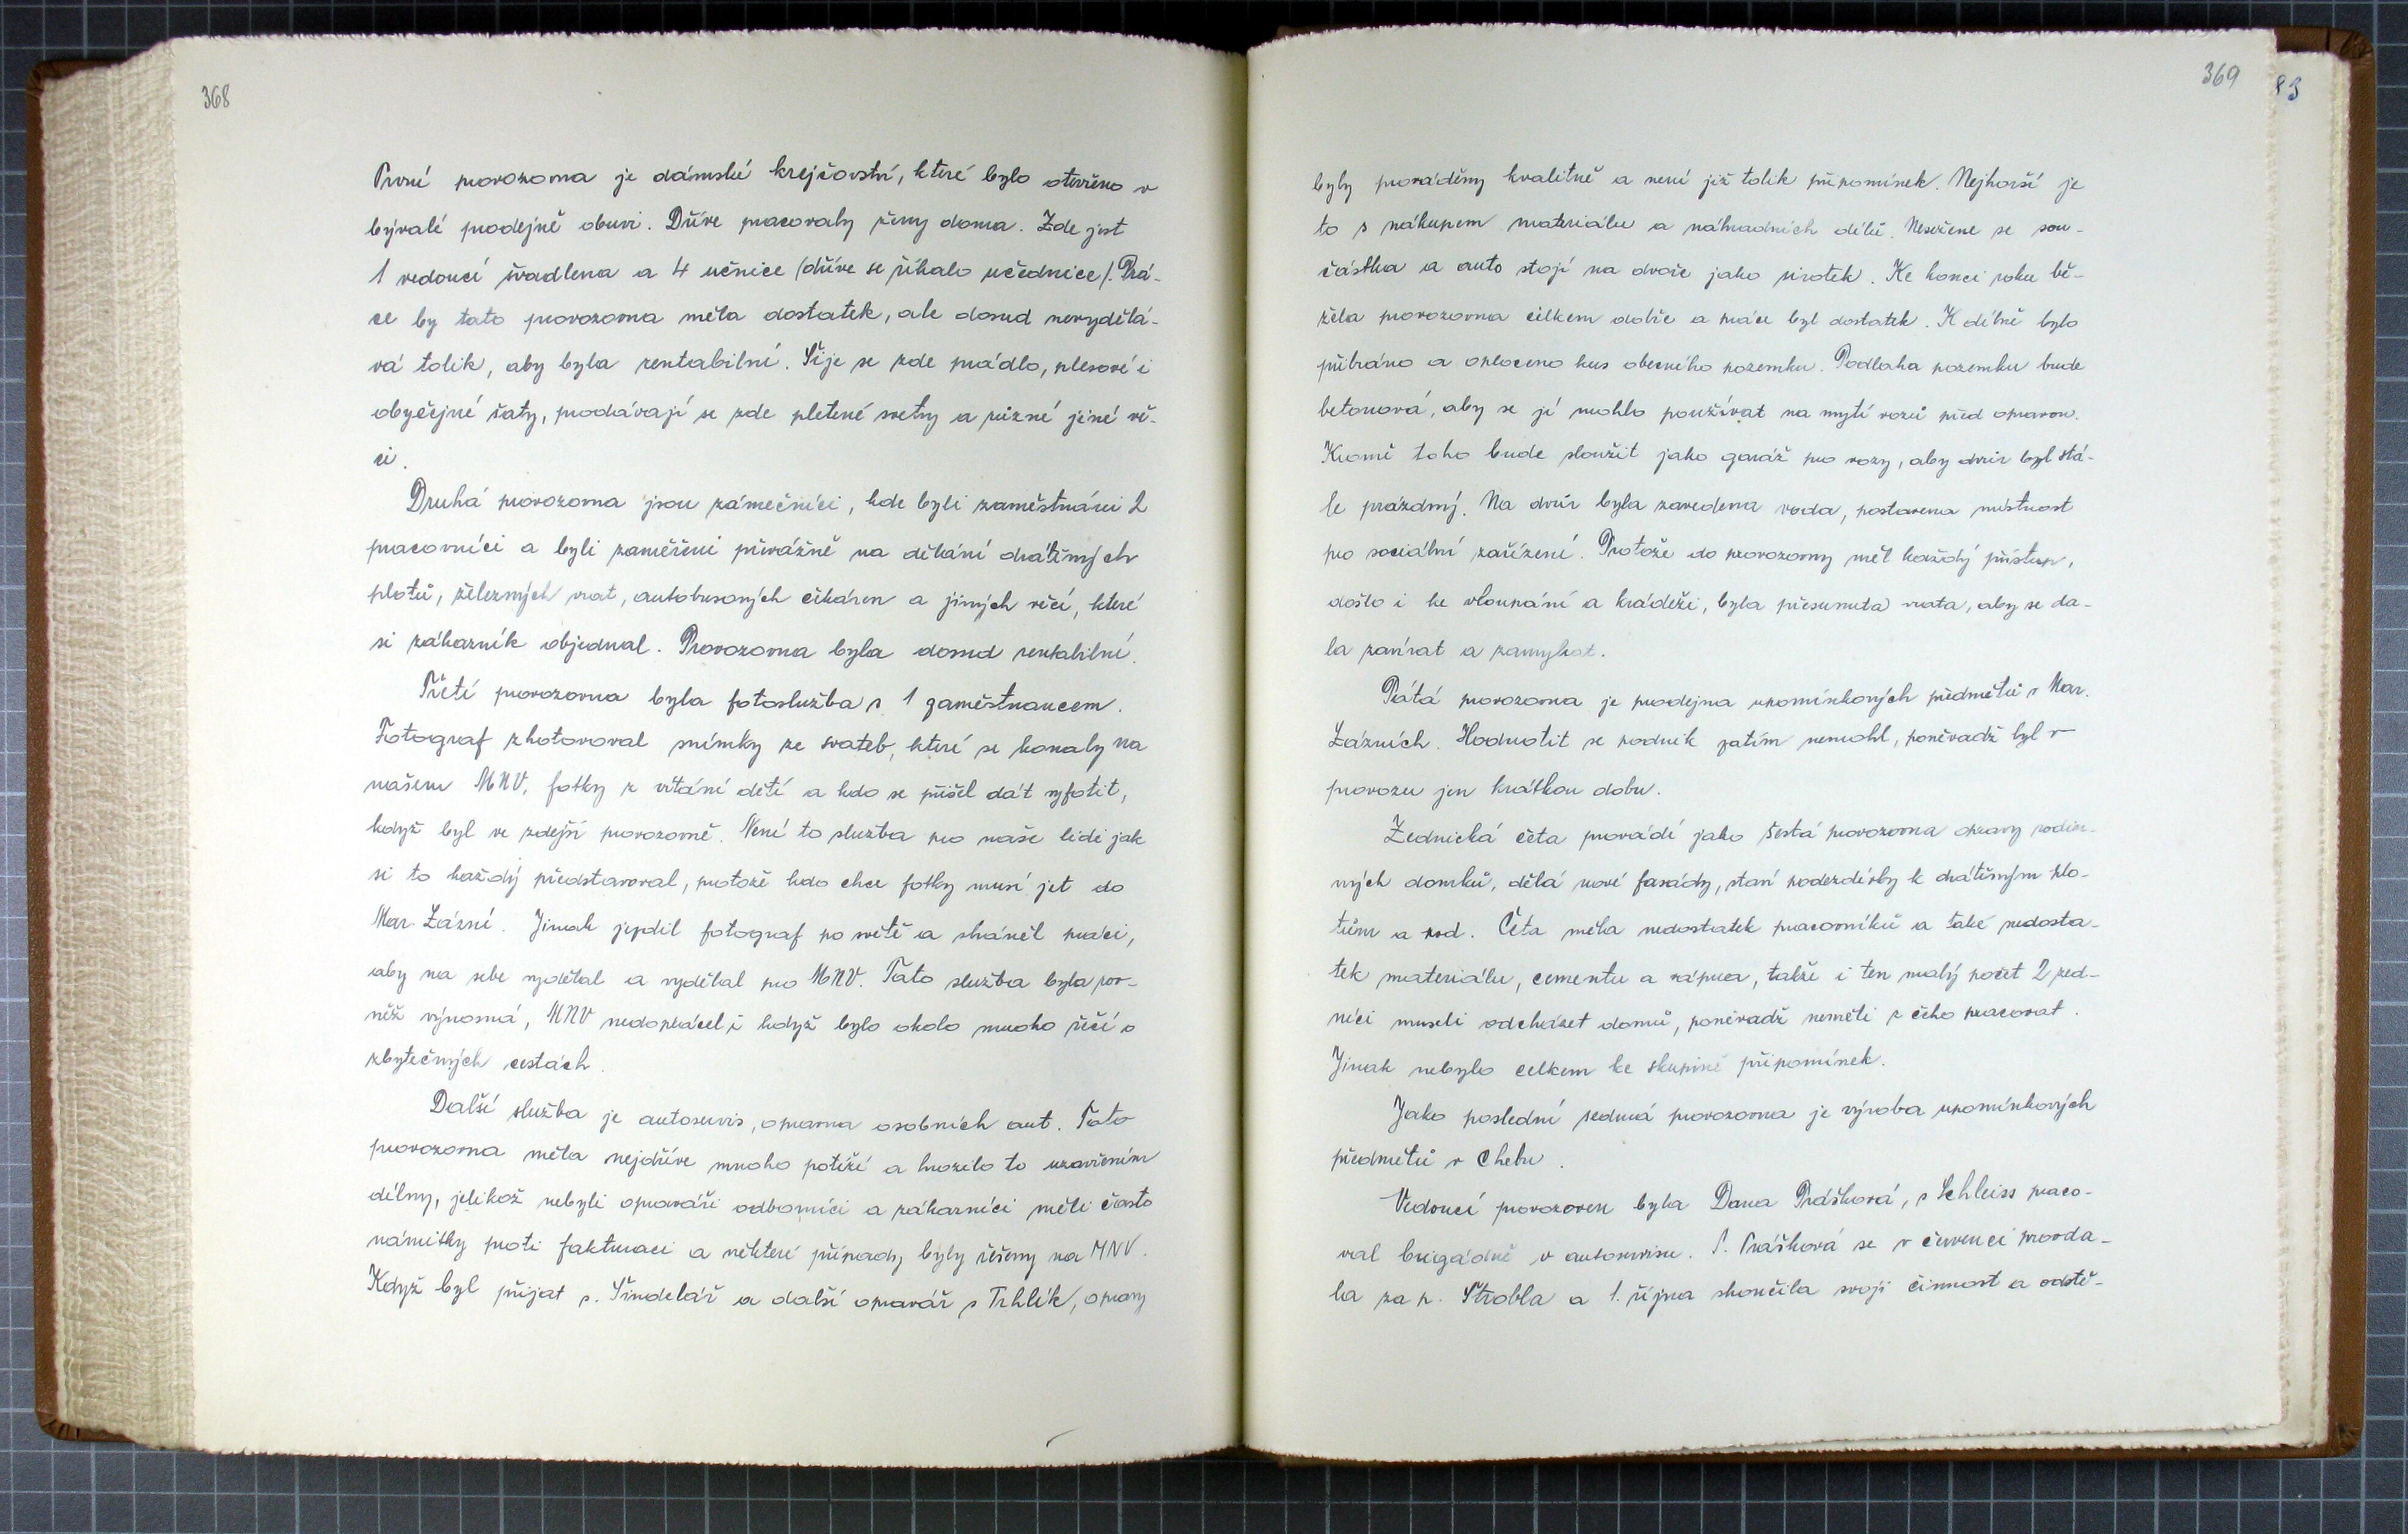 368
První provozovna je dámské krejčovství, které bylo otevřeno v
bývalé prodejně obuvi. Dříve pracovaly ženy doma. Zde jest
1 vedoucí švadlena a 4 učnice (dříve se říkalo učednice). Prá-
ce by tato provozovna měla dostatek, ale dosud nevydělá-
vá tolik, aby byla rentabilní. Šije se zde prádlo, plesové i
obyčejné šaty, prodávají se zde pletené svetry a různé jiné vě-
ci.
Druhá provozovna jsou zámečníci, kde byli zaměstnáni 2
pracovníci a byli zaměřeni převážně na dělání drátěných
plotů, železných vrat, autobusových čekáren a jiných věcí, které
si zákazník objednal. Provozovna byla dosud rentabilní.
Třetí provozovna byla fotoslužba s 1 zaměstnancem.
Fotograf zhotovoval snímky ze svateb, které se konaly na
našem MNV, fotky z vítání dětí a kdo se přišel dát vyfotit,
když byl ve zdejší provozovně. Není to služba pro naše lidi jak
si to každý představoval, protože kdo chce fotky musí jet do
Mar. Lázní. Jinak jezdil fotograf po světě a sháněl práci,
aby na sebe vydělal a vydělal pro MNV. Tato služba byla rov-
něž výnosná, MNV nedoplácel, i když bylo okolo mnoho řečí o
zbytečných cestách.
Další služba je autoservis, opravna osobních aut. Tato
provozovna měla nejdříve mnoho potíží a hrozilo to uzavřením
dílny, jelikož nebyli opraváři odborníci a zákazníci měli často
námitky proti fakturaci a některé případy byly řešeny na MNV.
Když byl přijat s. Šindelář a další opravář s Trhlík, opravy
369
83
byly prováděny kvalitně a není již tolik připomínek. Nejhorší je
to s nákupem materiálu a náhradních dílů. Nesežene se sou-
částka a auto stojí na dvoře jako sirotek. Ke konci roku bě-
žela provozovna celkem dobře a práce byl dostatek. K dílně bylo
přibráno a oploceno kus obecního pozemku. Podlaha pozemku bude
betonová, aby se jí mohlo používat na mytí vozů před opravou.
Kromě toho bude sloužit jako garáž pro vozy, aby dvůr byl stá-
le prázdný. Na dvůr byla zavedena voda, postavena místnost
pro sociální zařízení. Protože do provozovny měl každý přístup,
došlo i ke vloupání a krádeži, byla přesunuta vrata, aby se da-
la zavírat a zamykat.
Pátá provozovna je prodejna upomínkových předmětů v Mar.
Lázních. Hodnotit se podnik zatím nemohl, poněvadž byl v
provozu jen krátkou dobu.
Zednická četa provádí jako šestá provozovna opravy rodin-
ných domků, dělá nové fasády, staví podezdívky k drátěným plo-
tům a pod. Četa měla nedostatek pracovníků a také nedosta-
tek materiálu, cementu a vápna, takže i ten malý počet 2 zed-
níci museli odcházet domů, poněvadž neměli z čeho pracovat.
Jinak nebylo celkem ke skupině připomínek.
Jako poslední sedmá provozovna je výroba upomínkových
předmětů v Chebu.
Vedoucí provozoven byla Dana Prášková, s Schleiss praco-
val brigádně v autoservisu. S. Prášková se v červenci provda-
la za p. Štrobla a 1. října skončila svoji činnost a odstě-